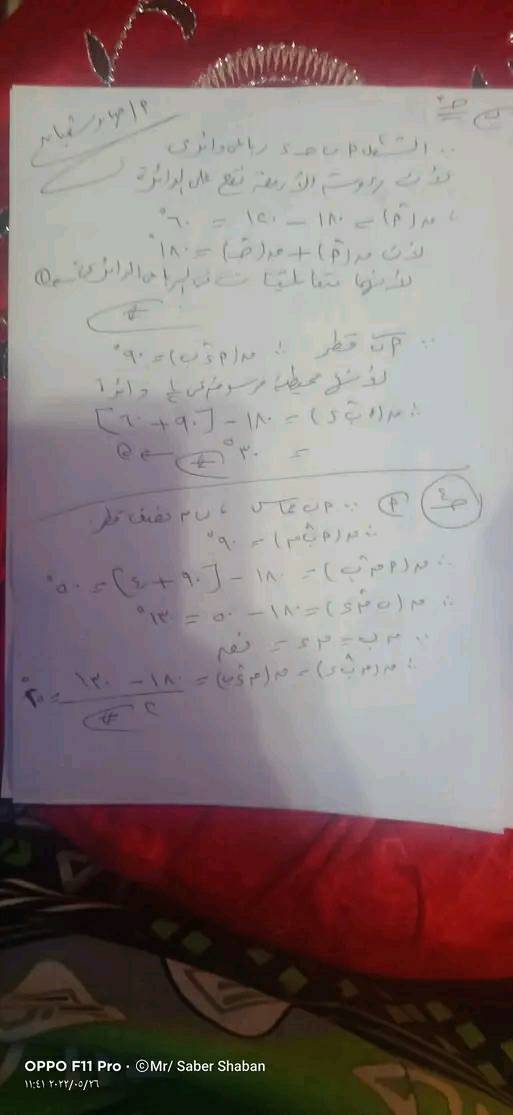 ∵ الشكل ٢ ب حـ ء رباعى دائرى
لأن رءوسه الأربعة تقع على الدائرة
∴ ق(٢̂) = ١٨٠ - ١٢٠ = ٦٠°
لأن ق(٢̂) + ق(حـ̂) = ١٨٠°
لأنهما متقابلتان فى الرباعى الدائرى
∵ ٢ب قطر ∴ ق(٢ء̂ب) = ٩٠°
لأنها محيطية مرسومة فى ½ دائرة
∴ ق(٢ب̂ء) = ١٨٠ - [٩٠ + ٦٠]
= ٣٠° #
∵ ٢ب مماس ، ب م نصف قطر
∴ ق(٢ب̂م) = ٩٠°
∴ ق(٢م̂ب) = ١٨٠ - [٩٠ + ٤٠] = ٥٠°
∴ ق(ب م̂ ء) = ١٨٠ - ٥٠ = ١٣٠°
∵ م ب = م ء = نفه
∴ ق(م ب̂ ء) = ق(م ء̂ ب) = ١٨٠ - ١٣٠ / ٢ = ٢٥° #
OPPO F11 Pro · ©Mr/ Saber Shaban
١١:٤١ ٢٠٢٢/٠٥/٢٦